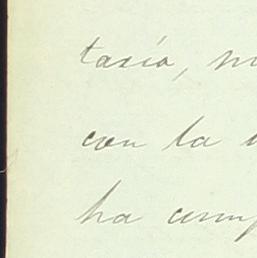 tasía, m
con la
ha cump